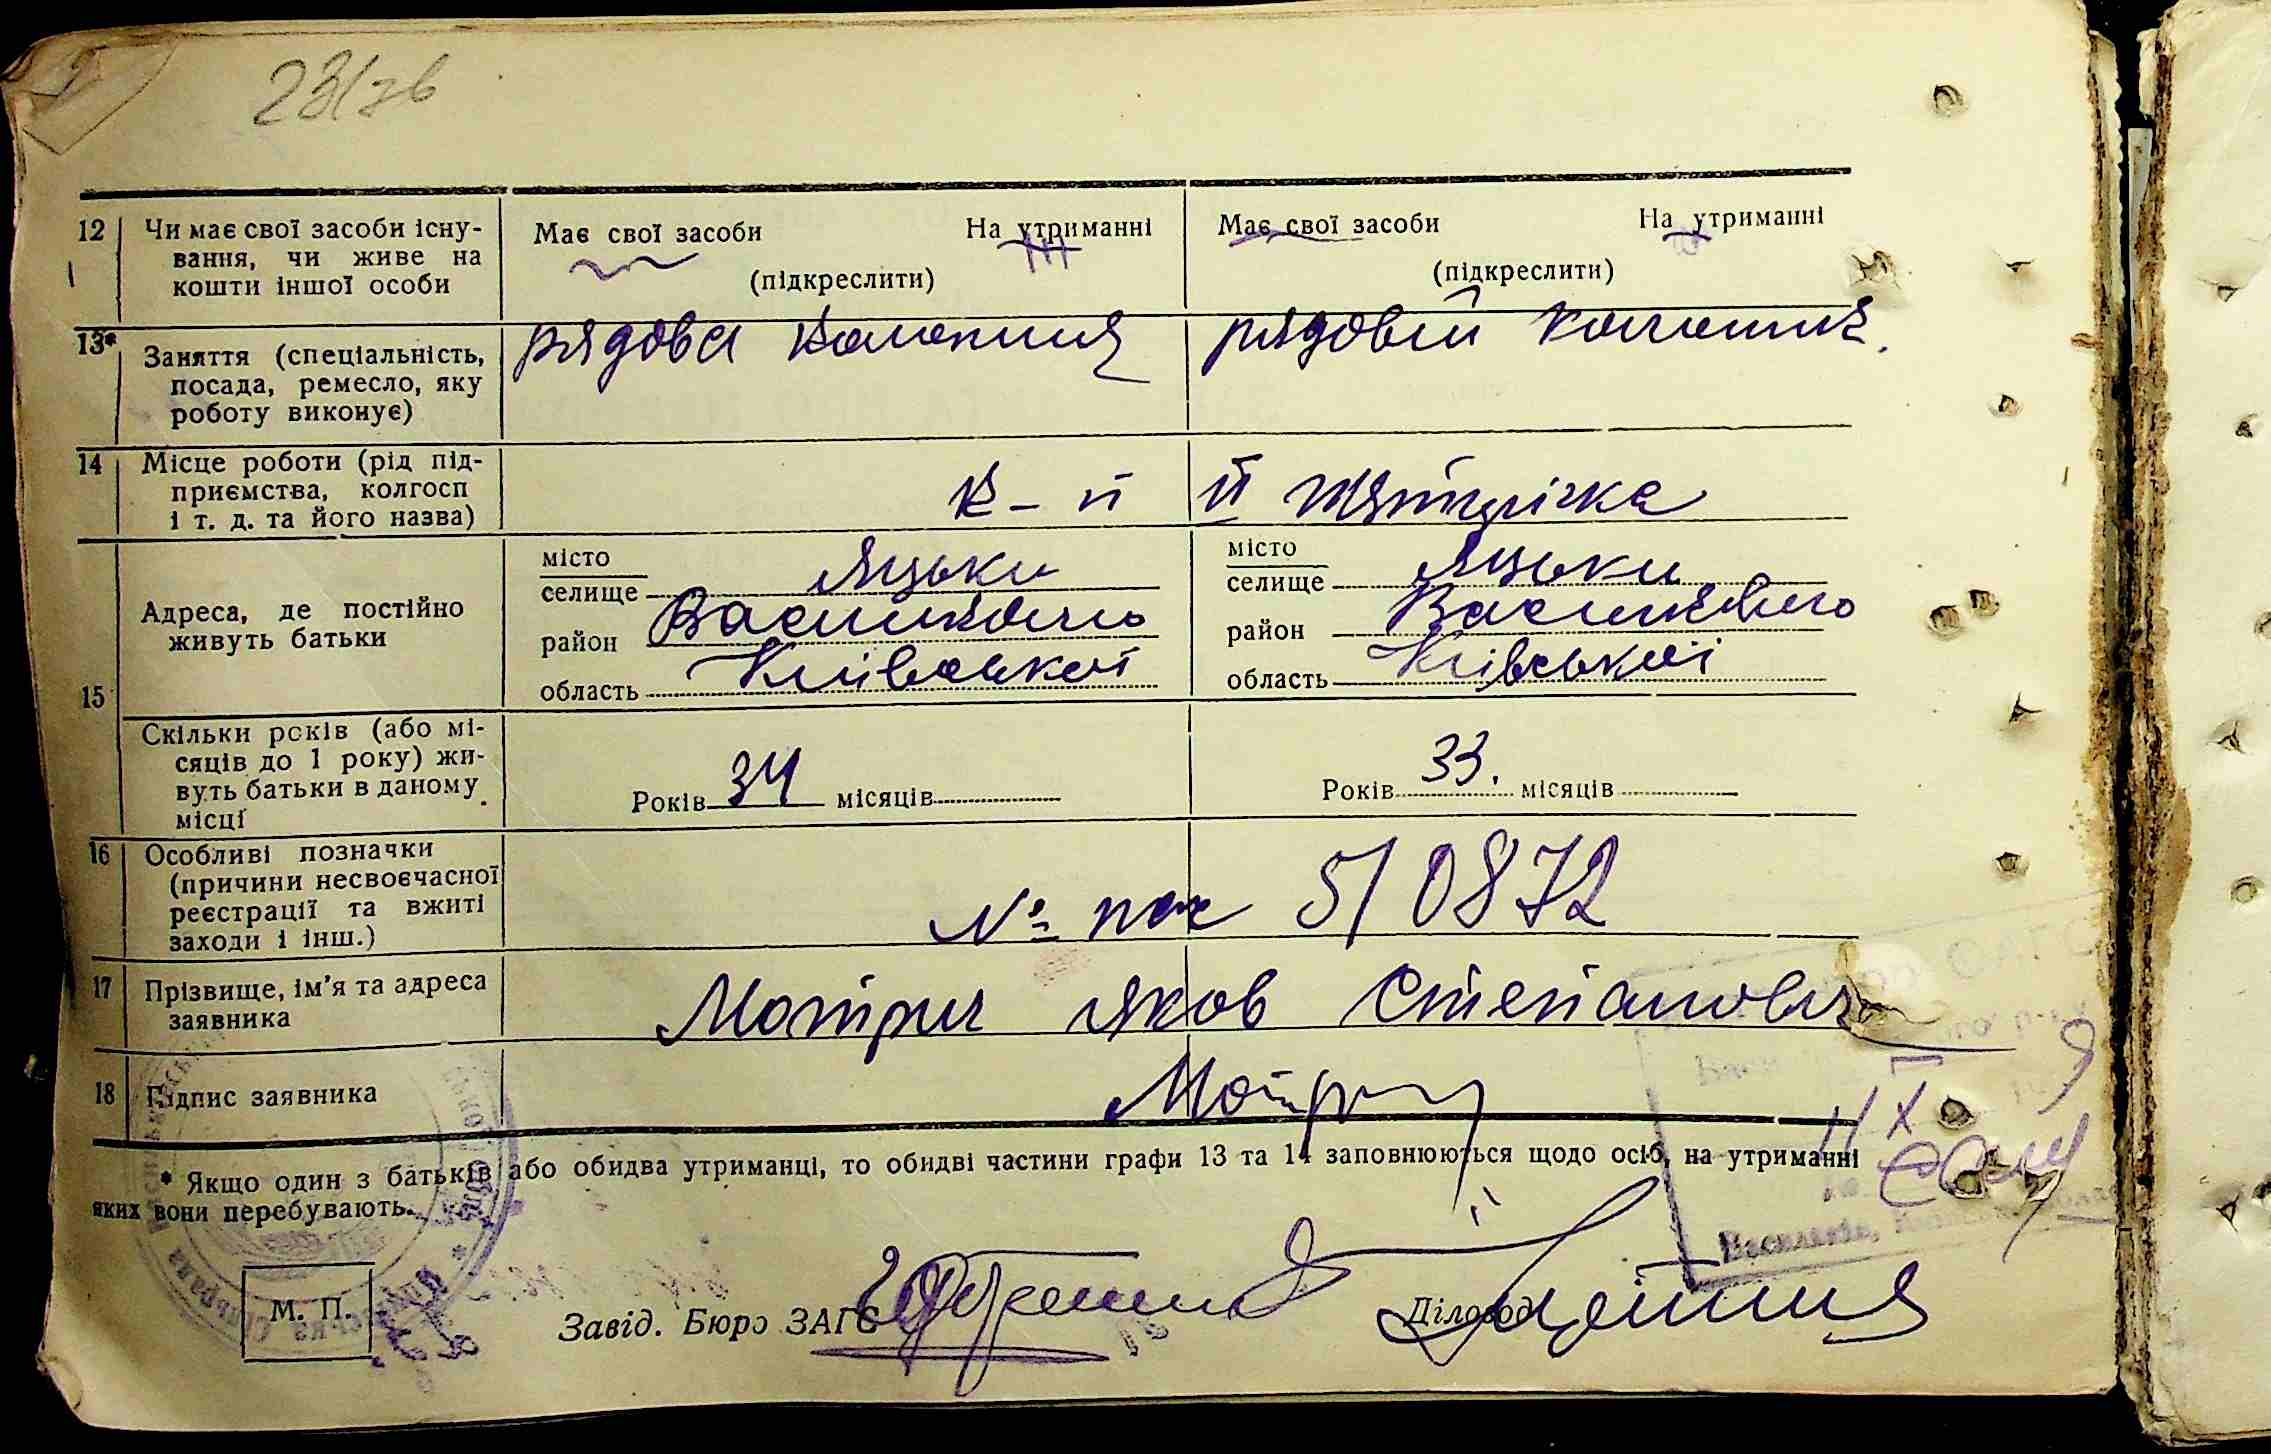 231зв
12 Чи має свої засоби існу-
вання, чи живе на
кошти іншої особи
Має свої засоби На утриманні
(підкреслити)
Має свої засоби На утриманні
(підкреслити)
13* Заняття (спеціальність,
посада, ремесло, яку
роботу виконує)
рядова колгоспниця
рядовий колгоспник.
14 Місце роботи (рід під-
приємства, колгосп
і т. д. та його назва)
к-п ІІ П'ятирічка
15 Адреса, де постійно
живуть батьки
місто
селище Яцьки
район Васильківського
область Київської
місто
селище Яцьки
район Васильківського
область Київської
Скільки років (або мі-
сяців до 1 року) жи-
вуть батьки в даному
місці
Років 34 місяців
Років 33. місяців
16 Особливі позначки
(причини несвоєчасної
реєстрації та вжиті
заходи і інш.)
№ пас 510872
17 Прізвище, ім'я та адреса
заявника
Мотрич Яков Степанович
18 Підпис заявника
Мотрич
* Якщо один з батьків або обидва утриманці, то обидві частини графи 13 та 14 заповнюються щодо осіб, на утриманні
яких вони перебувають.
М. П.
Завід. Бюро ЗАГС
Діловод